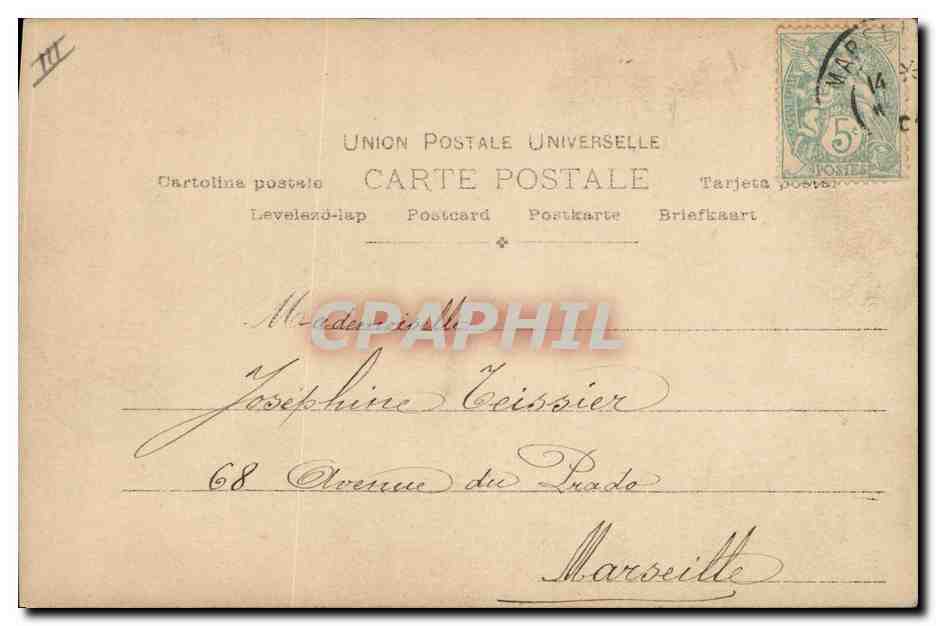 III
MARSE
14
5c
POSTES
UNION POSTALE UNIVERSELLE
Cartolina postale CARTE POSTALE Tarjeta postal
Levelező-lap Postcard Postkarte Briefkaart
Mademoiselle
CPAPHIL
Joséphine Teissier
68 Avenue du Prado
Marseille